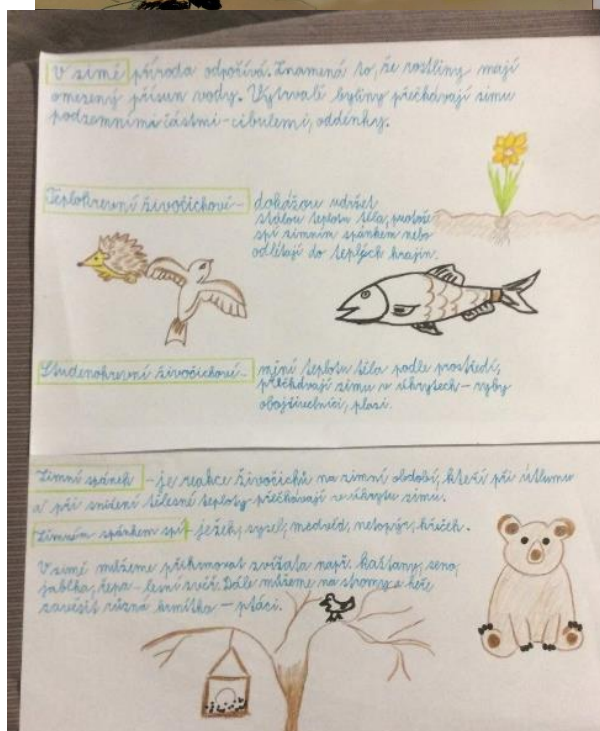 V zimě příroda odpočívá. Znamená to, že rostliny mají
omezený přísun vody. Vytrvalé byliny přečkávají zimu
podzemními částmi - cibulemi, oddénky.
Teplokrevní živočichové - dokážou udržet
stálou teplotu těla, protože
spí zimním spánkem nebo
odlétají do teplých krajin.
Studenokrevní živočichové - mění teplotu těla podle prostředí,
přečkávají zimu v úkrytech - ryby
obojživelníci, plazi.
Zimní spánek - je reakce živočichů na zimní období, kteří při útlumu
a při snížení tělesné teploty přečkávají v úkrytu zimu.
Zimním spánkem spí ježek, sysel, medvěd, netopýr, křeček.
V zimě můžeme přikrmovat zvířata např. kaštany, seno,
jablka, řepa - lesní zvěř. Dále můžeme na stromy a keře
zavěsit různá krmítka - ptáci.